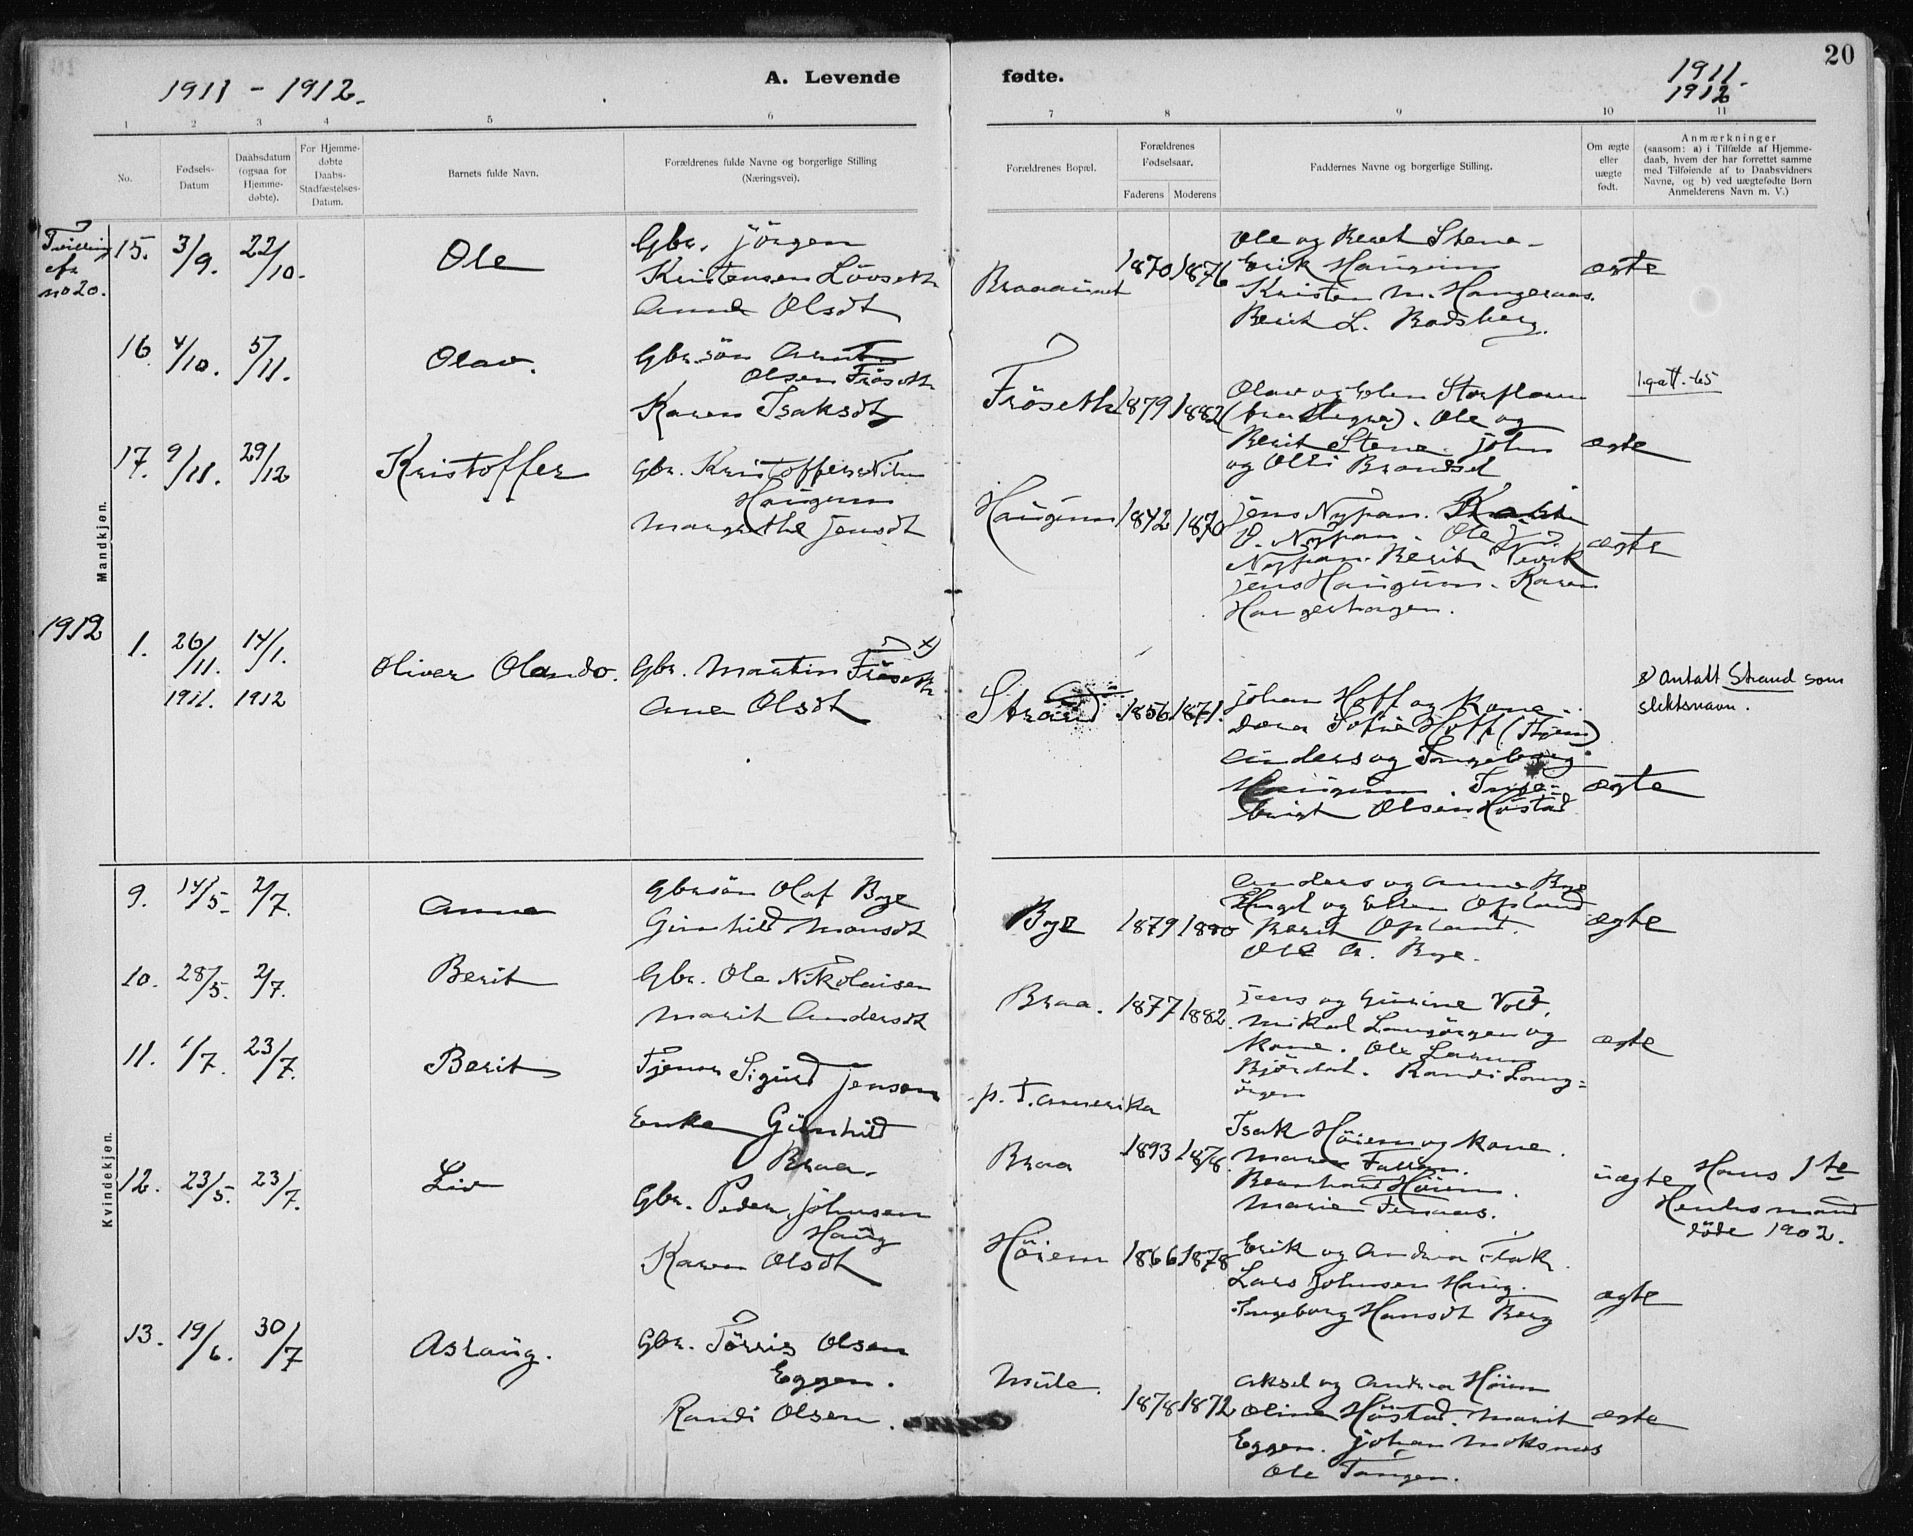 1911 - 1912.
A. Levende fødte.
1911
1912
20
1 2 3 4 5 6 7 8 9 10 11
No.
Fødsels-
Datum
Daabsdatum
(ogsaa for
Hjemme-
døbte).
For Hjemme-
døbte
Daabs-
Stadfæstelses-
Datum.
Barnets fulde Navn.
Forældrenes fulde Navne og borgerlige Stilling
(Næringsvei).
Forældrenes Bopæl.
Forældrenes
Fødselsaar.
Faderens Moderens
Faddernes Navne og borgerlige Stilling.
Om ægte
eller
uægte
født.
Anmærkninger
(saasom: a) i Tilfælde af Hjemme-
daab, hvem der har forrettet samme
med Tilføiende af to Daabsvidners
Navne, og b) ved uægtefødte Børn
Anmelderens Navn m. V.)
Mandkjøn.
Tvilling
efr
no 20.
15. 3/9. 22/10. Ole
Gbr. Jörgen
Kristensen Lövseth
Anne Olsdt
1870 1876
Ole og Beret Stene
Erik Haugum
Kristen M. Haugernaas.
Berit L. Bodsberg.
ægte
16 4/10. 5/11. Olav.
Gbr.sön Arnt
Olsen Fröseth
Karen Isaksdt
Fröseth 1879 1882
Olav og Elen Storflor
Ole og
Berit Stene. John
og Olli
ægte
1.gatt.-65
17. 9/11. 29/12 Kristoffer
Gbr. Kristoffer
Haugum
Margrethe Jensdt
Haugum 1842 1870
Jens Nypan.
O. Nypan. Ole J.
Nypan. Berit
Jens Haugum. Karen
Haugerhagen.
ægte
1912
1. 26/11. 14/1. Oliver Olando.
1911. 1912
Gbr. Martin Fröseth x)
Ane Olsdt
Strand. 1856 1871.
Johan Hoff og Kone
Sofie Hoff (Thjem)
Anders og Ingeborg
Haugum. Inge=
brigt Olsen Höstad
ægte
x) Antatt Strand som
slektsnavn.
Kvindekjøn.
9. 14/5. 2/7. Anna
Gbrsön Olaf Bye
Gunhild Monsdt
Bye 1879 1880
Anders og Anne Bye
og Ellen Opland
Berit Opland.
Ole A. Bye.
ægte
10. 28/5. 2/7. Berit
Gbr. Ole Nikolaisen
Marit Andersdt
Braa. 1877 1882.
Jens og Gurine Vold,
Mikal Langörgen og
Kone. Ole Larsen
Björdal. Randi Lang=
örgen
ægte
11. 1/7. 23/7. Berit
Tjener Sigurd Jensen
Enke Gunhild
Braa.
p. T. Amerika
Braa 1893 1878.
Isak Höiem og Kone.
Bernhard Höiem.
uægte
Hans 1ste
døde 1902.
12. 23/5. 23/7. Liv
Gbr. Peder Johnsen
Haug
Karen Olsdt
Höiem 1866 1878
Erik og Andrea Flak.
Lars Johnsen Haug.
Ingeborg Hansdt Berg
ægte
13. 19/6. 30/7 Aslaug.
Gbr. Törris Olsen
Eggen.
Randi Olsen.
Mule. 1878 1872
Aksel og Andrea Höiem
Oline Höstad. Marit
Eggen. Johan Moksnes
Ole Tangen.
ægte